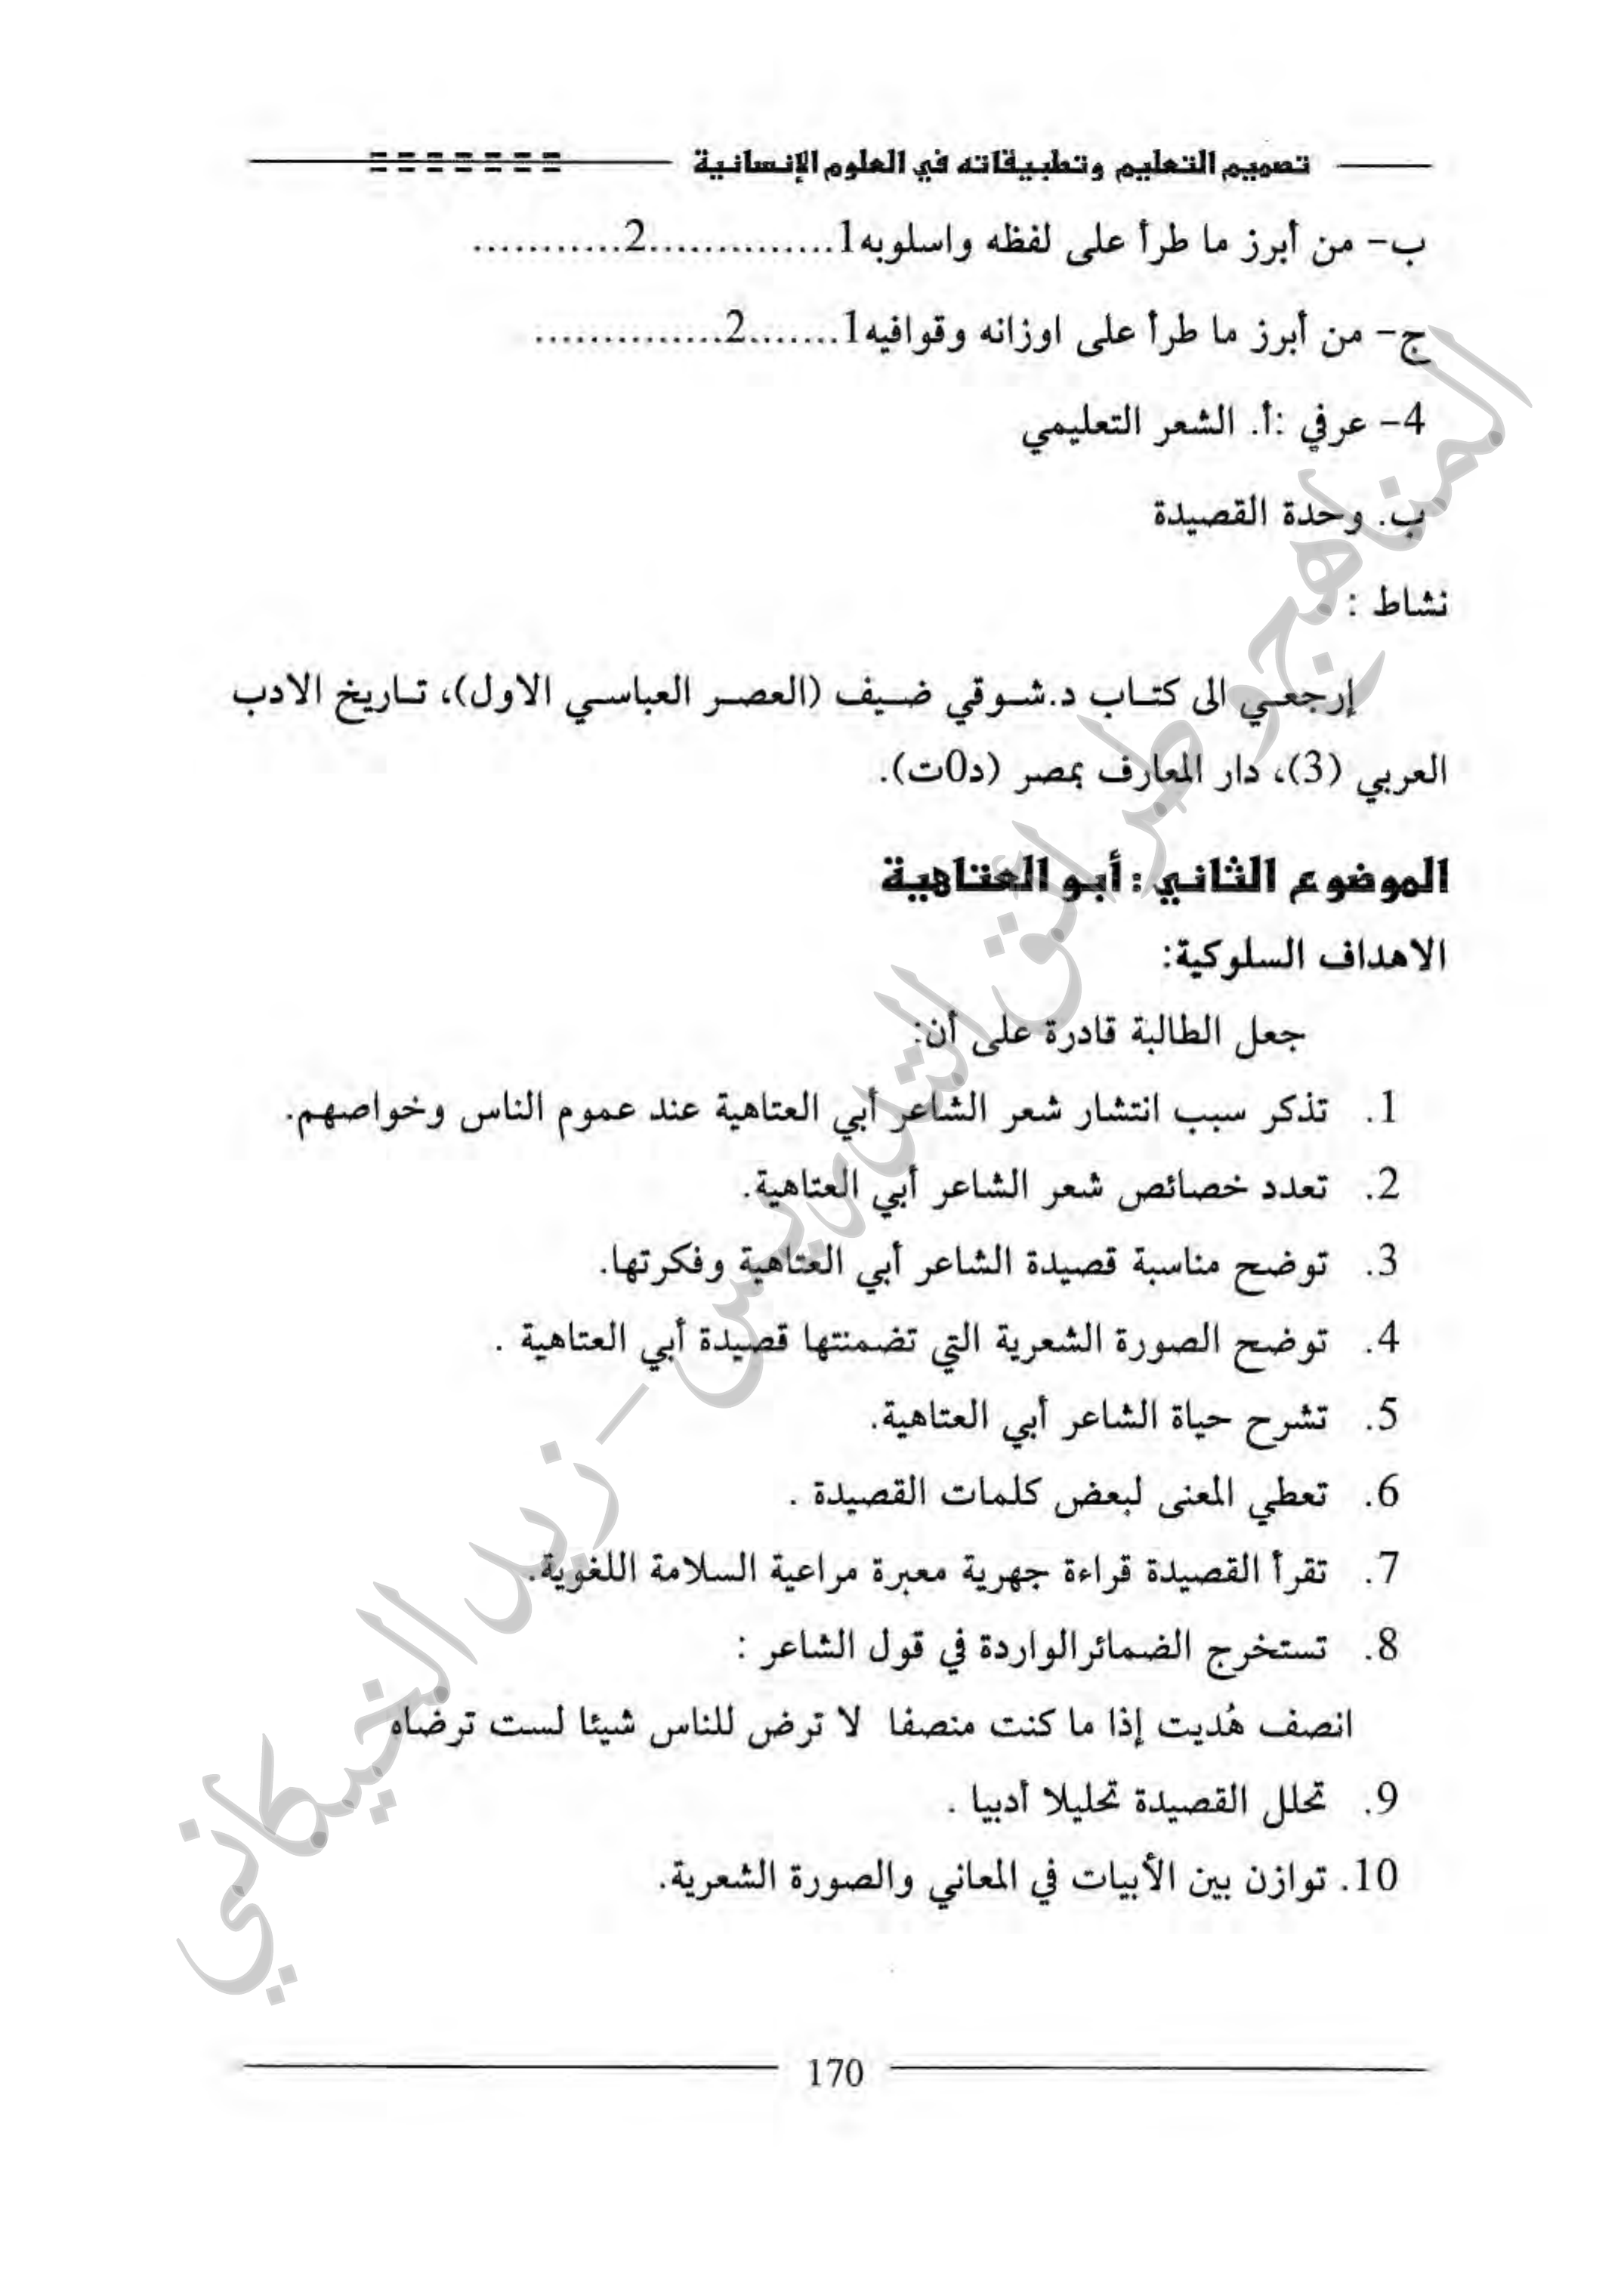 تصميم التعليم وتطبيقاته في العلوم الإنسانية
ب- من أبرز ما طرأ على لفظه واسلوبه1..............2...........
ج- من أبرز ما طرأ على اوزانه وقوافيه1.......2..............
4- عرفي :أ. الشعر التعليمي
ب. وحدة القصيدة
نشاط :
إرجعي الى كتاب د.شوقي ضيف (العصر العباسي الاول)، تاريخ الادب
العربي (3)، دار المعارف بمصر (د0ت).
الموضوع الثاني : أبو العتاهية
الاهداف السلوكية:
جعل الطالبة قادرة على أن:
1. تذكر سبب انتشار شعر الشاعر أبي العتاهية عند عموم الناس وخواصهم.
2. تعدد خصائص شعر الشاعر أبي العتاهية.
3. توضح مناسبة قصيدة الشاعر أبي العتاهية وفكرتها.
4. توضح الصورة الشعرية التي تضمنتها قصيدة أبي العتاهية .
5. تشرح حياة الشاعر أبي العتاهية.
6. تعطي المعنى لبعض كلمات القصيدة .
7. تقرأ القصيدة قراءة جهرية معبرة مراعية السلامة اللغوية.
8. تستخرج الضمائرالواردة في قول الشاعر :
انصف هُديت إذا ما كنت منصفا لا ترض للناس شيئا لست ترضاه
9. تحلل القصيدة تحليلا أدبيا .
10. توازن بين الأبيات في المعاني والصورة الشعرية.
170
المناهج وطرائق التدريس - زيد الخيكاني